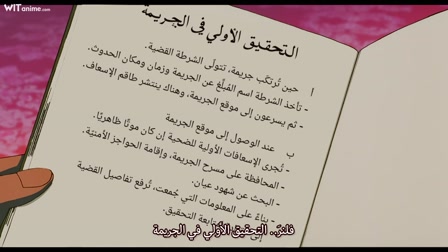 WITanime.com
التحقيق الأولي في الجريمة
أ حين تُرتكَب جريمة، تتولّى الشرطة القضية.
- تأخذ الشرطة اسم المُبلِّغ عن الجريمة وزمان ومكان الحدوث.
- ثم يسرعون إلى موقع الجريمة، وهناك ينتشر طاقم الإسعاف.
ب عند الوصول إلى موقع الجريمة
- تُجرى الإسعافات الأولية للضحية إن كان موتًا ظاهريًا.
- المحافظة على مسرح الجريمة، وإقامة الحواجز الأمنيّة.
- البحث عن شهود عيان.
- بناءً على المعلومات التي جُمعت، تُرفع تفاصيل القضية
إلى متابعة التحقيق.
فلنرَ.. التحقيق الأوّلي في الجريمة